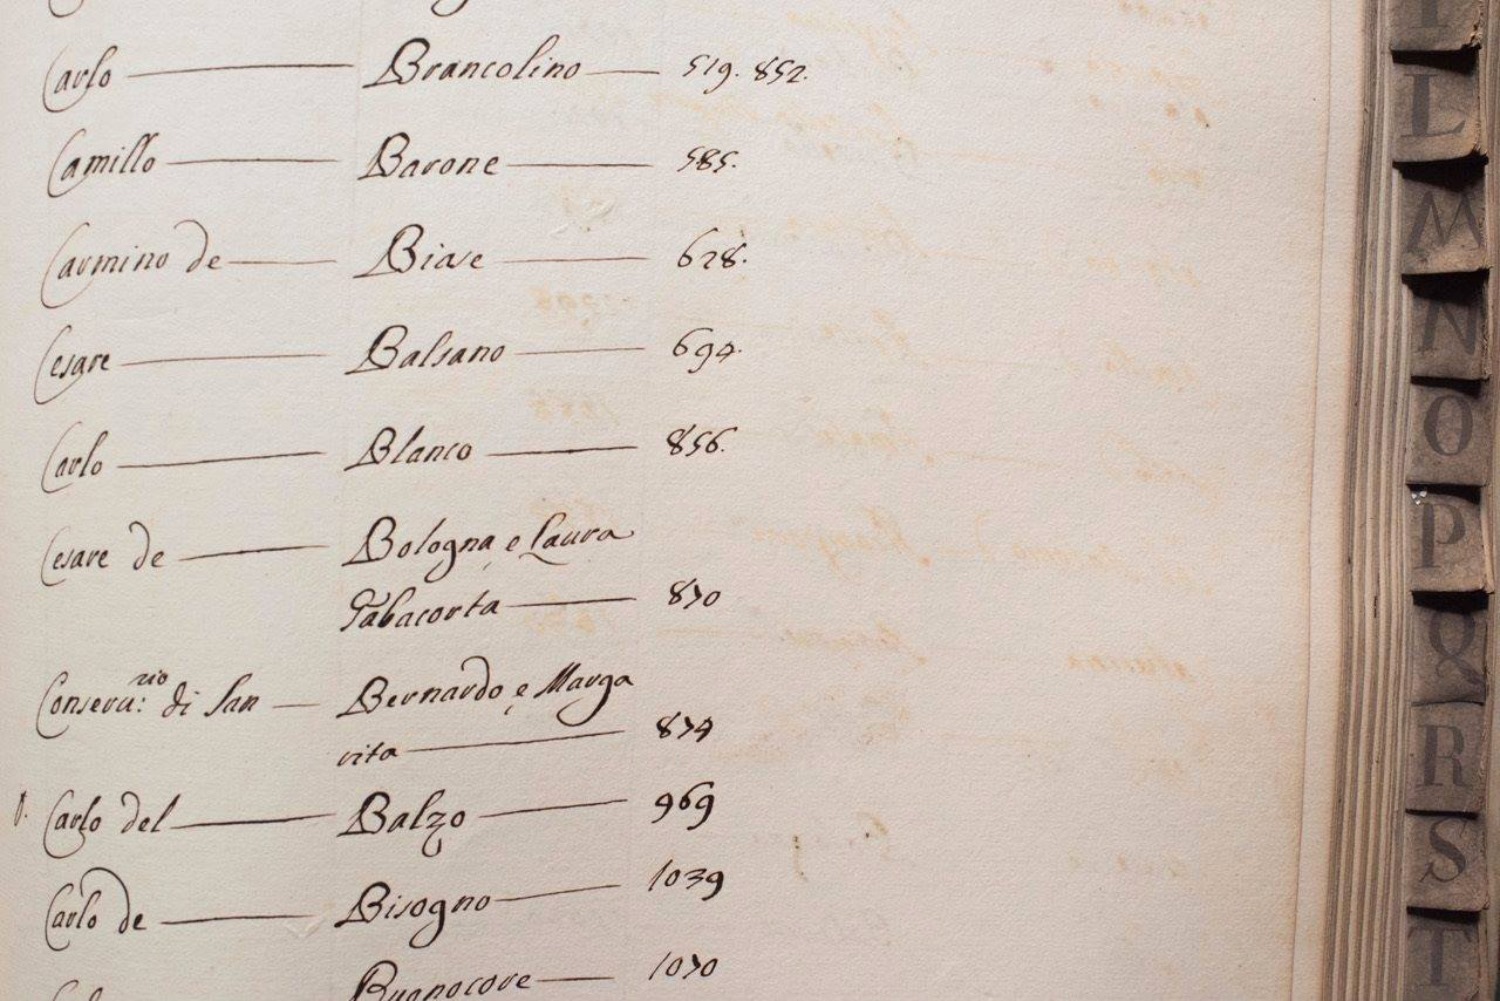 Carlo Brancolino 519. 852.
Camillo Barone 585.
Carmino de Biase 628.
Cesare Balsano 694.
Carlo Blanco 856.
Cesare de Bologna, e Laura
Tabacorta 870
Conserv:rio di San Bernardo, e Marga
rita 874
Carlo del Balzo 969
Carlo de Bisogno 1039
Buonocore 1070
L
M
N
O
P
Q
R
S
T